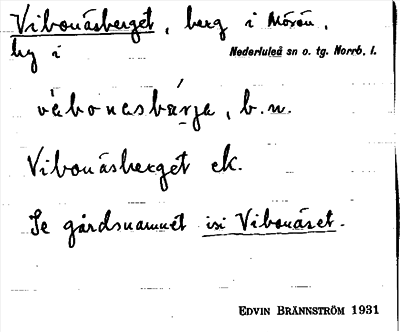 Vibonäsberget, berg i Mörön,
by i Nederluleå sn o. tg. Norrb. l.
vìbonäsbærja, b.n.
Vibonäsberget ek.
Se gårdsnamnet isi Vibonäset.
EDVIN BRÄNNSTRÖM 1931